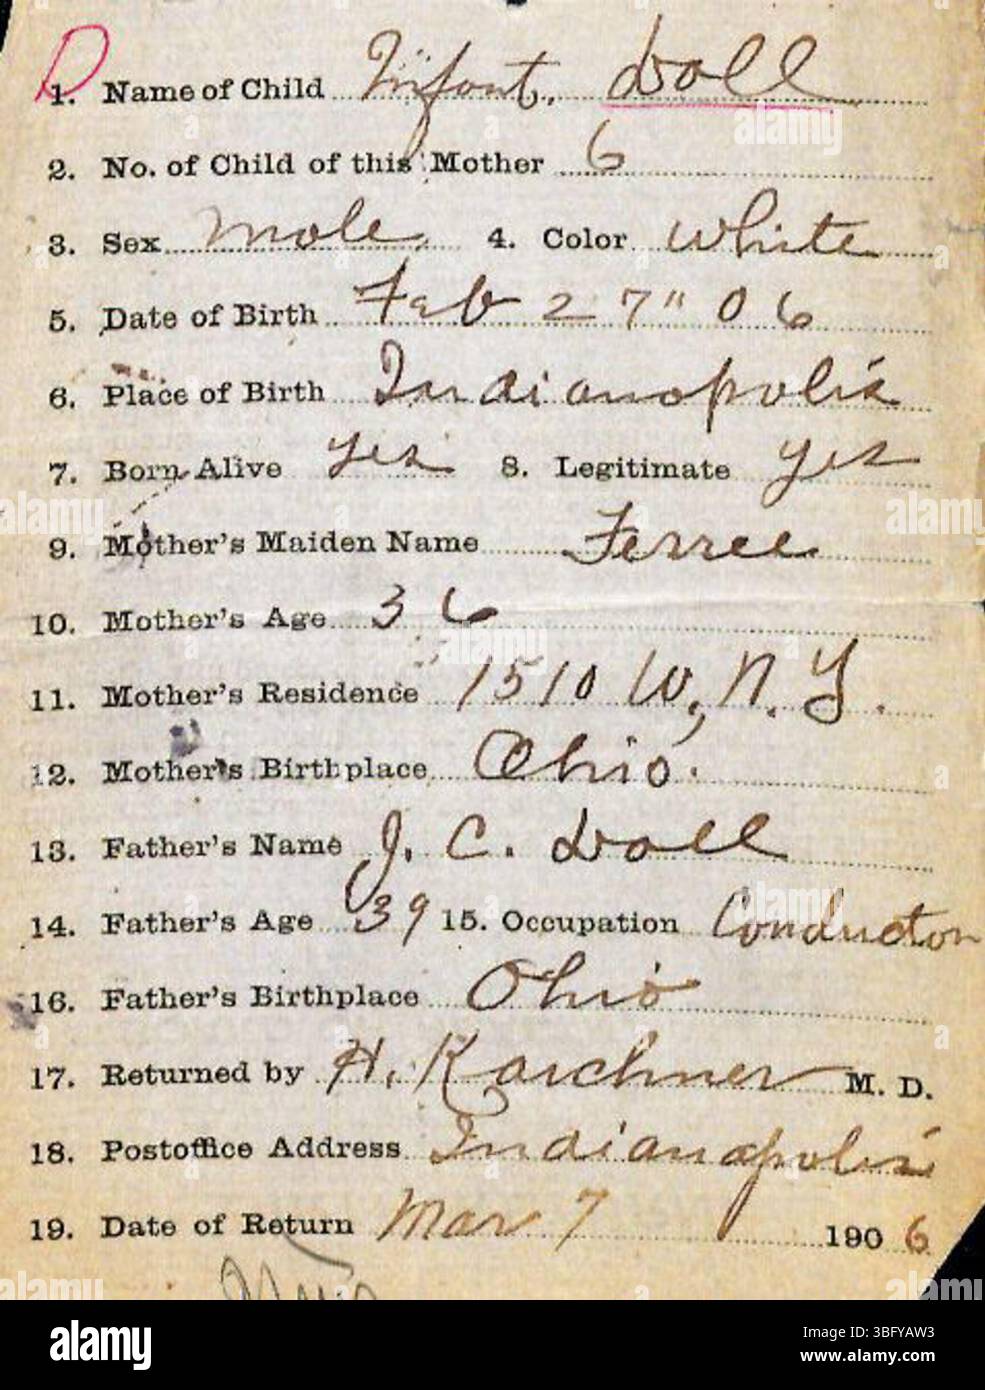 D
1. Name of Child Infant. Doll
2. No. of Child of this Mother 6
3. Sex Male. 4. Color White
5. Date of Birth Feb 27" 06
6. Place of Birth Indianapolis
7. Born Alive yes 8. Legitimate yes
9. Mother's Maiden Name Ferree
10. Mother's Age 36
11. Mother's Residence 1510 W, N. Y.
12. Mother's Birthplace Ohio.
13. Father's Name J. C. Doll
14. Father's Age 39 15. Occupation Conductor
16. Father's Birthplace Ohio
17. Returned by H. Karchner M. D.
18. Postoffice Address Indianapolis
19. Date of Return Mar 7 1906
alamy
Image ID: 3BFYAW3
www.alamy.com